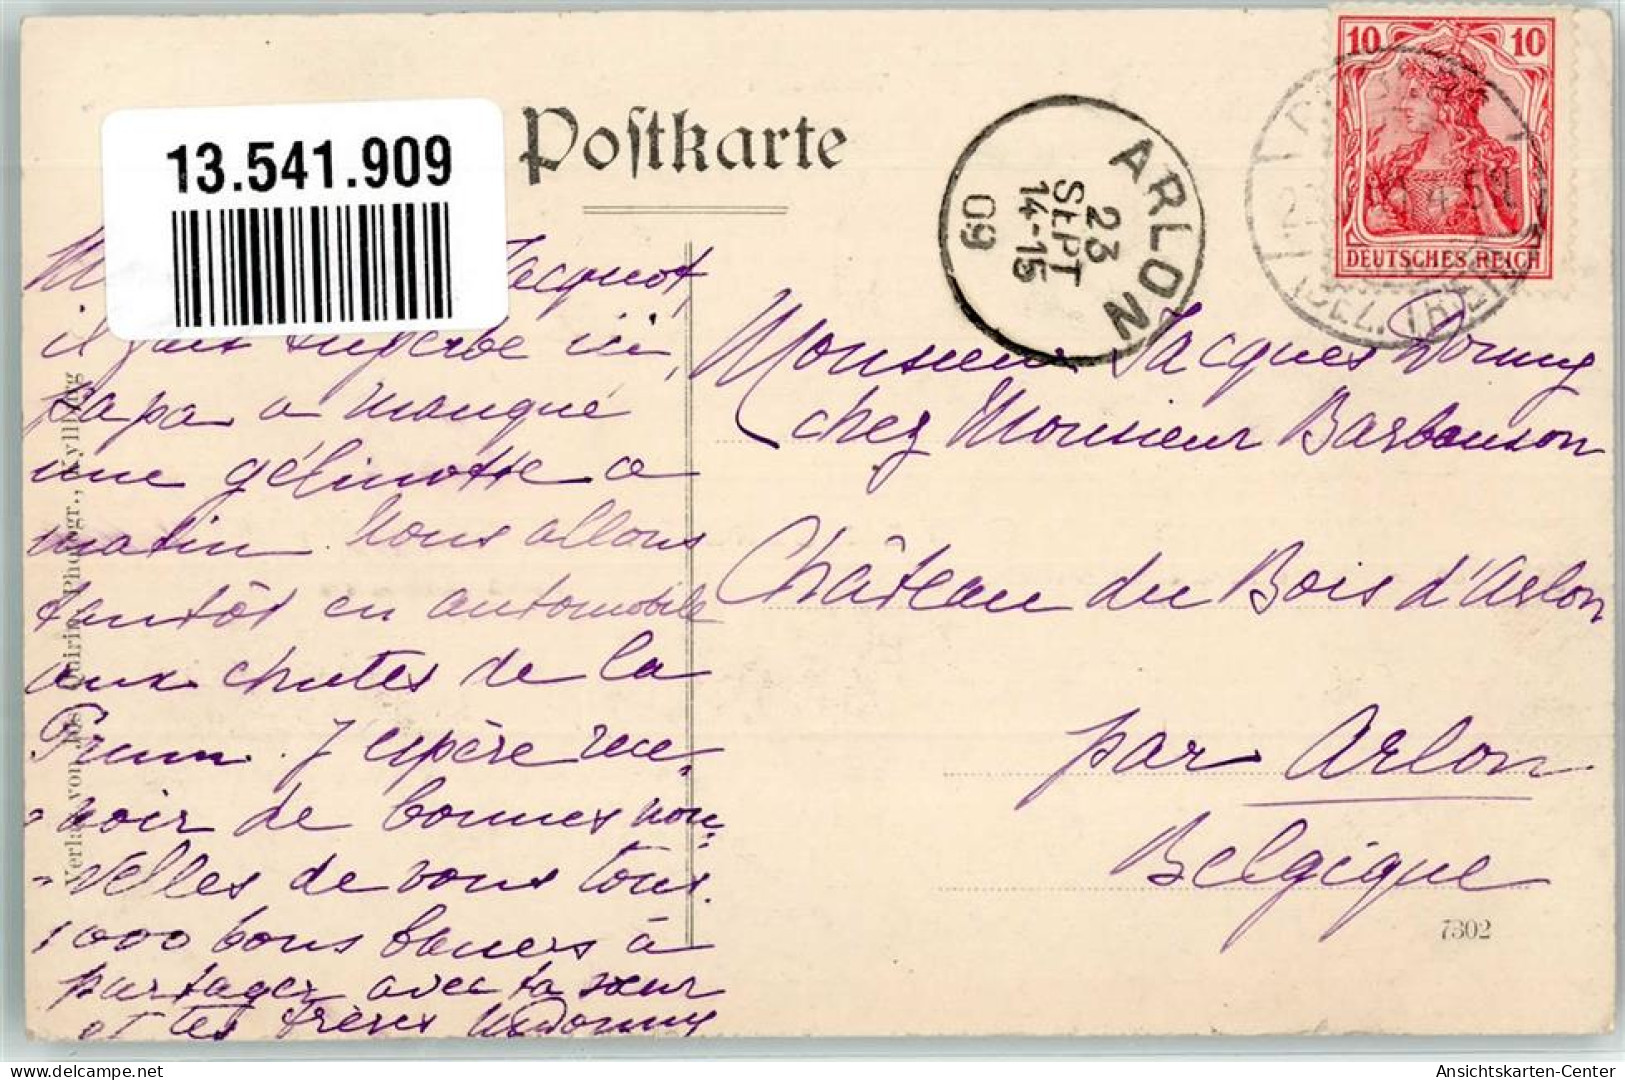 13.541.909
Postkarte
ARLON
23
SEPT
14-15
09
10 10
DEUTSCHES REICH
(BEZ. TRIER)
Jacquot,
il fait superbe ici,
papa a manqué
une gélinotte a
matin. Nous allons
tantôt en automobile
aux chutes de la
Prum. J'espère rece
voir de bonnes nou
velles de vous tous.
1000 bons baisers à
partager avec ta sœur
et tes frères
Monsieur Jacques
chez Monsieur Barbanson
Château du Bois d'Arlon
par Arlon
Belgique
7302
Verlag von Jos. Quirin, Photogr., Kyllburg
Ansichtskarten-Center